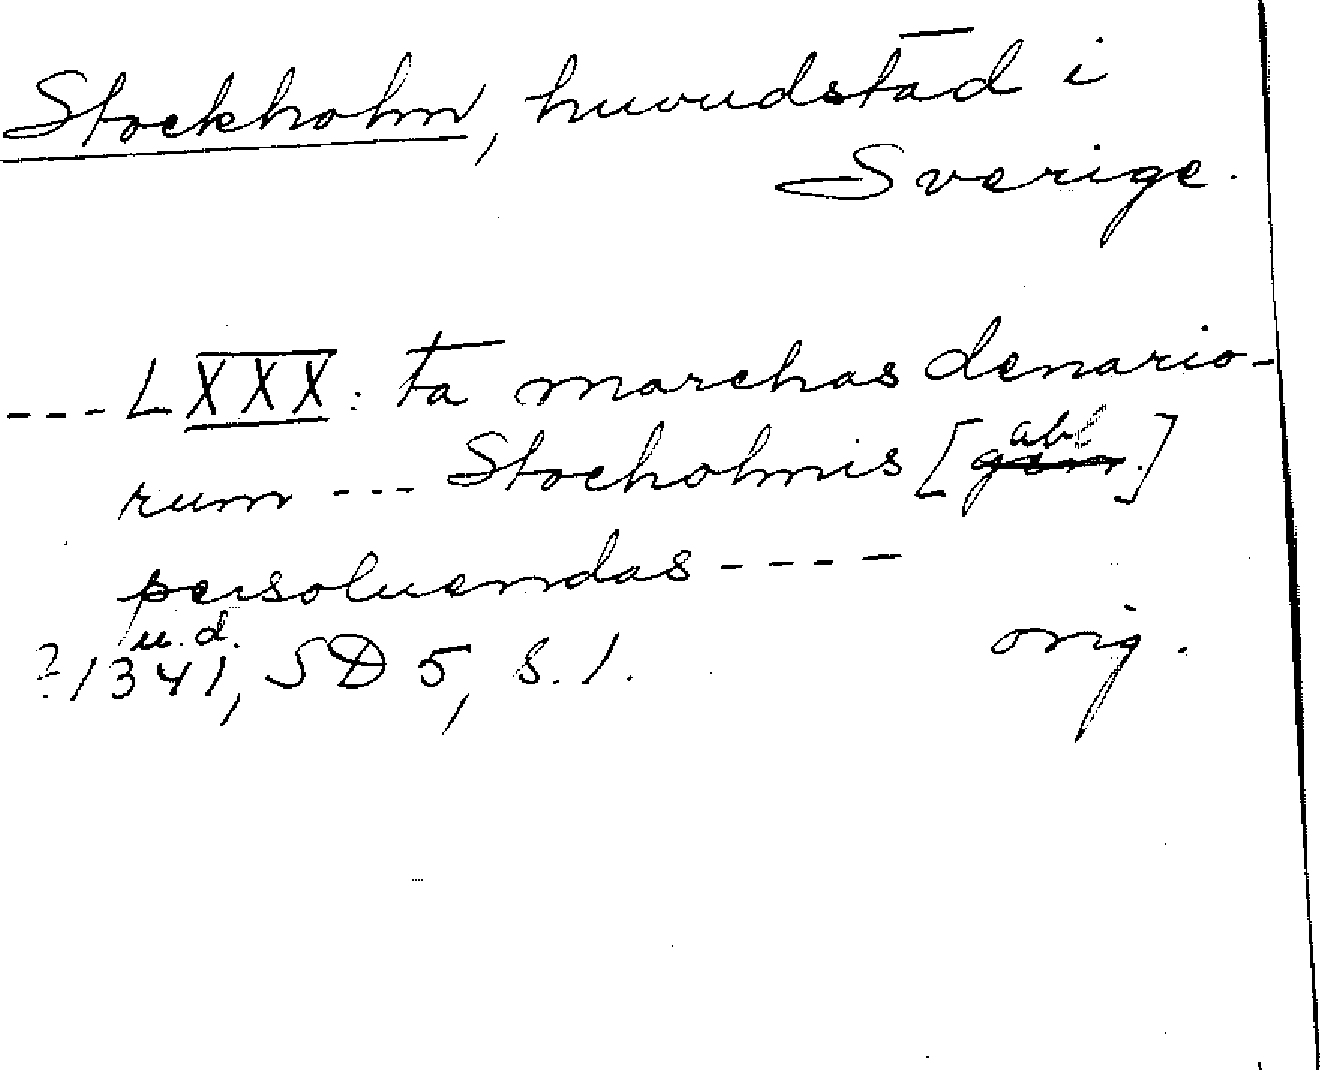 Stockholm, huvudstad i
Sverige.
--- LXXX: ta marchas denario-
rum --- Stocholmis [abl.]
persoluendas ----
u. d.
? 1341, SD 5, S. 1. orig.